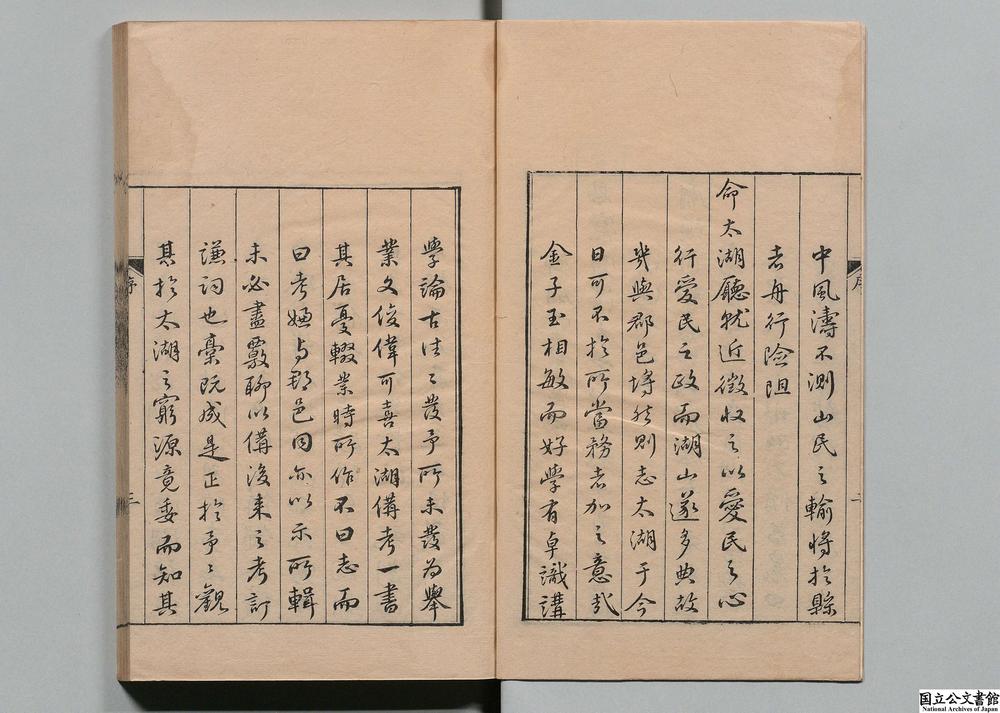 中風濤不測山民之輸將於縣
者舟行險阻
命太湖廳就近徵收之以愛民之心
行愛民之政而湖山遂多典故
幾與郡邑埒然則志太湖于今
日可不於所當務者加之意哉
金子玉相敏而好學有卓識講
序
三
學論古往〻發予所未發為舉
業文俊偉可喜太湖備考一書
其居憂輟業時所作不曰志而
曰考嫌與郡邑同亦以示所輯
未必盡覈聊以備後來之考訂
謙詞也稾既成是正於予〻觀
其於太湖之窮源竟委而知其
序
三
国立公文書館
National Archives of Japan